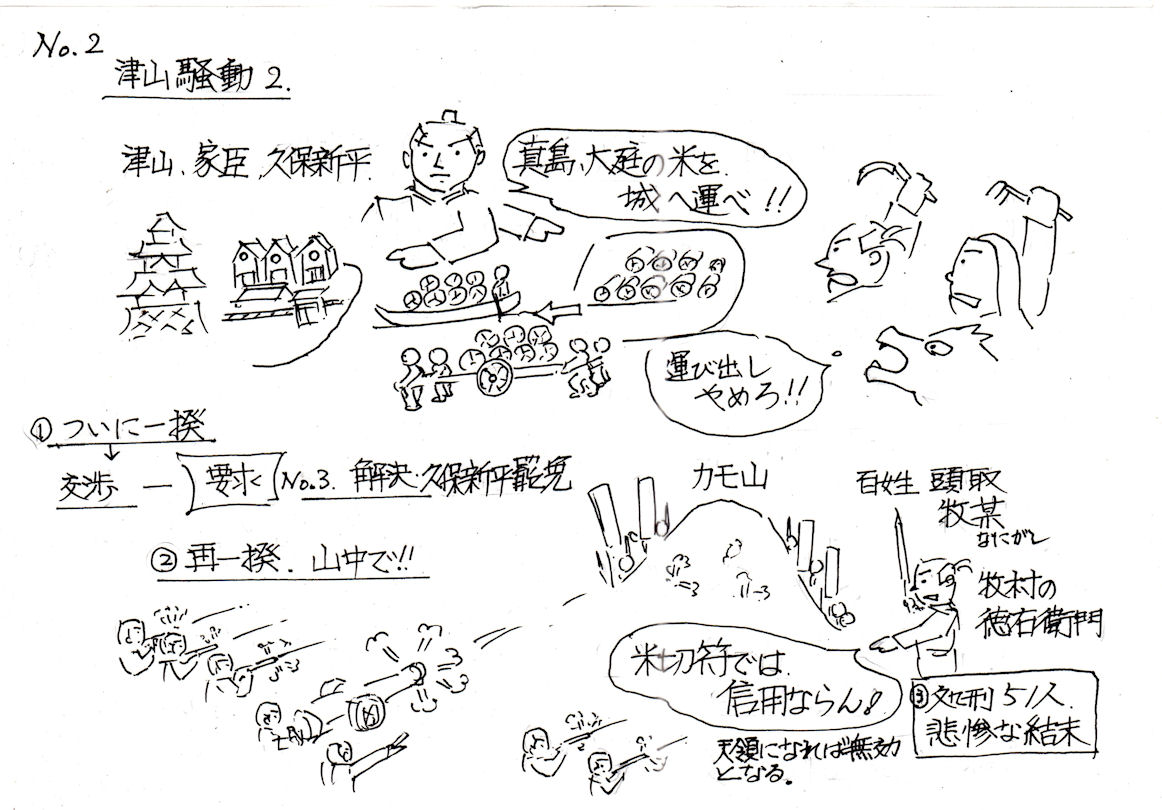 No.2
津山騒動 2.
津山、家臣、久保新平.
真島、大庭の米を
城へ運べ!!
運び出し
やめろ!!
①ついに一揆
交渉 — 要求 No.3. 解決・久保新平罷免
②再一揆. 山中で!!
カモ山
百姓 頭取
牧某
なにがし
牧村の
徳右衛門
米切符では
信用ならん!
天領になれば無効
となる.
③処刑51人.
悲惨な結末